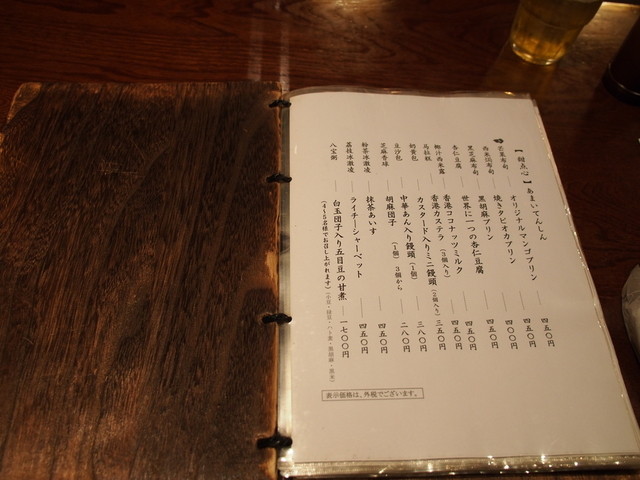 【甜点心】あまいてんしん
芒菓布甸 オリジナルマンゴプリン 四五〇円
西米焗布甸 焼きタピオカプリン 四五〇円
黒芝麻布甸 黒胡麻プリン 四〇〇円
杏仁豆腐 世界に一つの杏仁豆腐 四五〇円
椰汁西米露 香港ココナッツミルク 四五〇円
馬拉糕 香港カステラ（3個入り） 四五〇円
奶黄包 カスタード入りミニ饅頭（2個入り） 三五〇円
豆沙包 中華あん入り饅頭（1個） 三八〇円
芝麻香球 胡麻団子（1個）3個から 二八〇円
粉茶冰激凌 抹茶あいす 四五〇円
荔枝冰激凌 ライチーシャーベット 四五〇円
八宝粥 白玉団子入り五目豆の甘煮 一七〇〇円
（4〜5名様でお召し上がれます）
表示価格は、外税でございます。